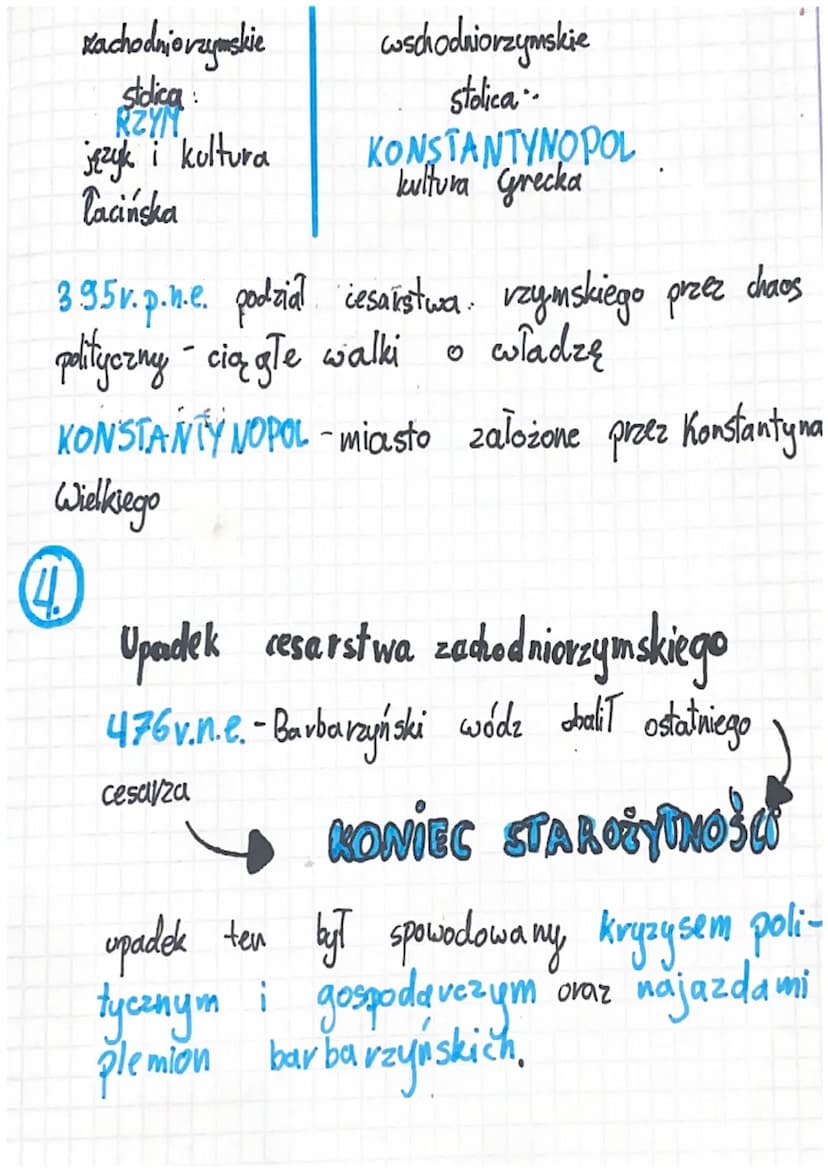 zachodniorzymskie
stolica :
RZYM
język i kultura
łacińska
wschodniorzymskie
stolica :
KONSTANTYNOPOL
kultura Grecka
395r.p.n.e. podział cesarstwa rzymskiego przez chaos
polityczny - ciągłe walki o władzę
KONSTANTYNOPOL - miasto założone przez Konstantyna
Wielkiego
4.
Upadek cesarstwa zachodniorzymskiego
476r.n.e. - Barbarzyński wódz obalił ostatniego
cesarza
KONIEC STAROŻYTNOŚCI
upadek ten był spowodowany kryzysem poli-
tycznym i gospodarczym oraz najazdami
plemion barbarzyńskich.